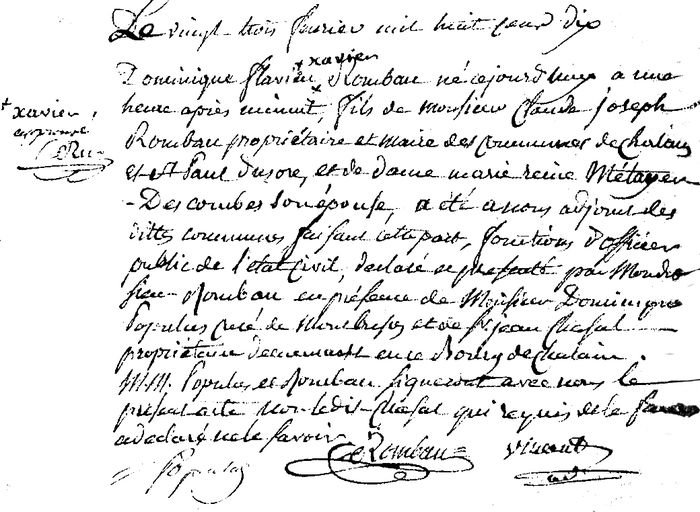 Le vingt trois fevrier mil huit cent dix
+ xavier
Dominique Flavien Rombau né cejourd'huy a une
heure après minuit, fils de monsieur Claude joseph
+ xavier,
approuvé
Rombau propriétaire et maire des communes de Chalain
et St Paul Dusore, et de dame marie reine Métayer
-Descombes son épouse, a été a nous adjoint des
dittes communes faisant cette part, fonctions d'officier
public de l'état civil, declaré et presenté par Mondit
sieur Rombau en présence de Monsieur Dominique
Populus curé de et de Sr jean Chasal
propriétaire en ce Bourg de Chalain.
MM. Populus et Rombau signeront avec nous le
présent acte non ledit Chasal qui requis de le faire
a declaré ne le savoir
Populus CRombau Vincent
adj